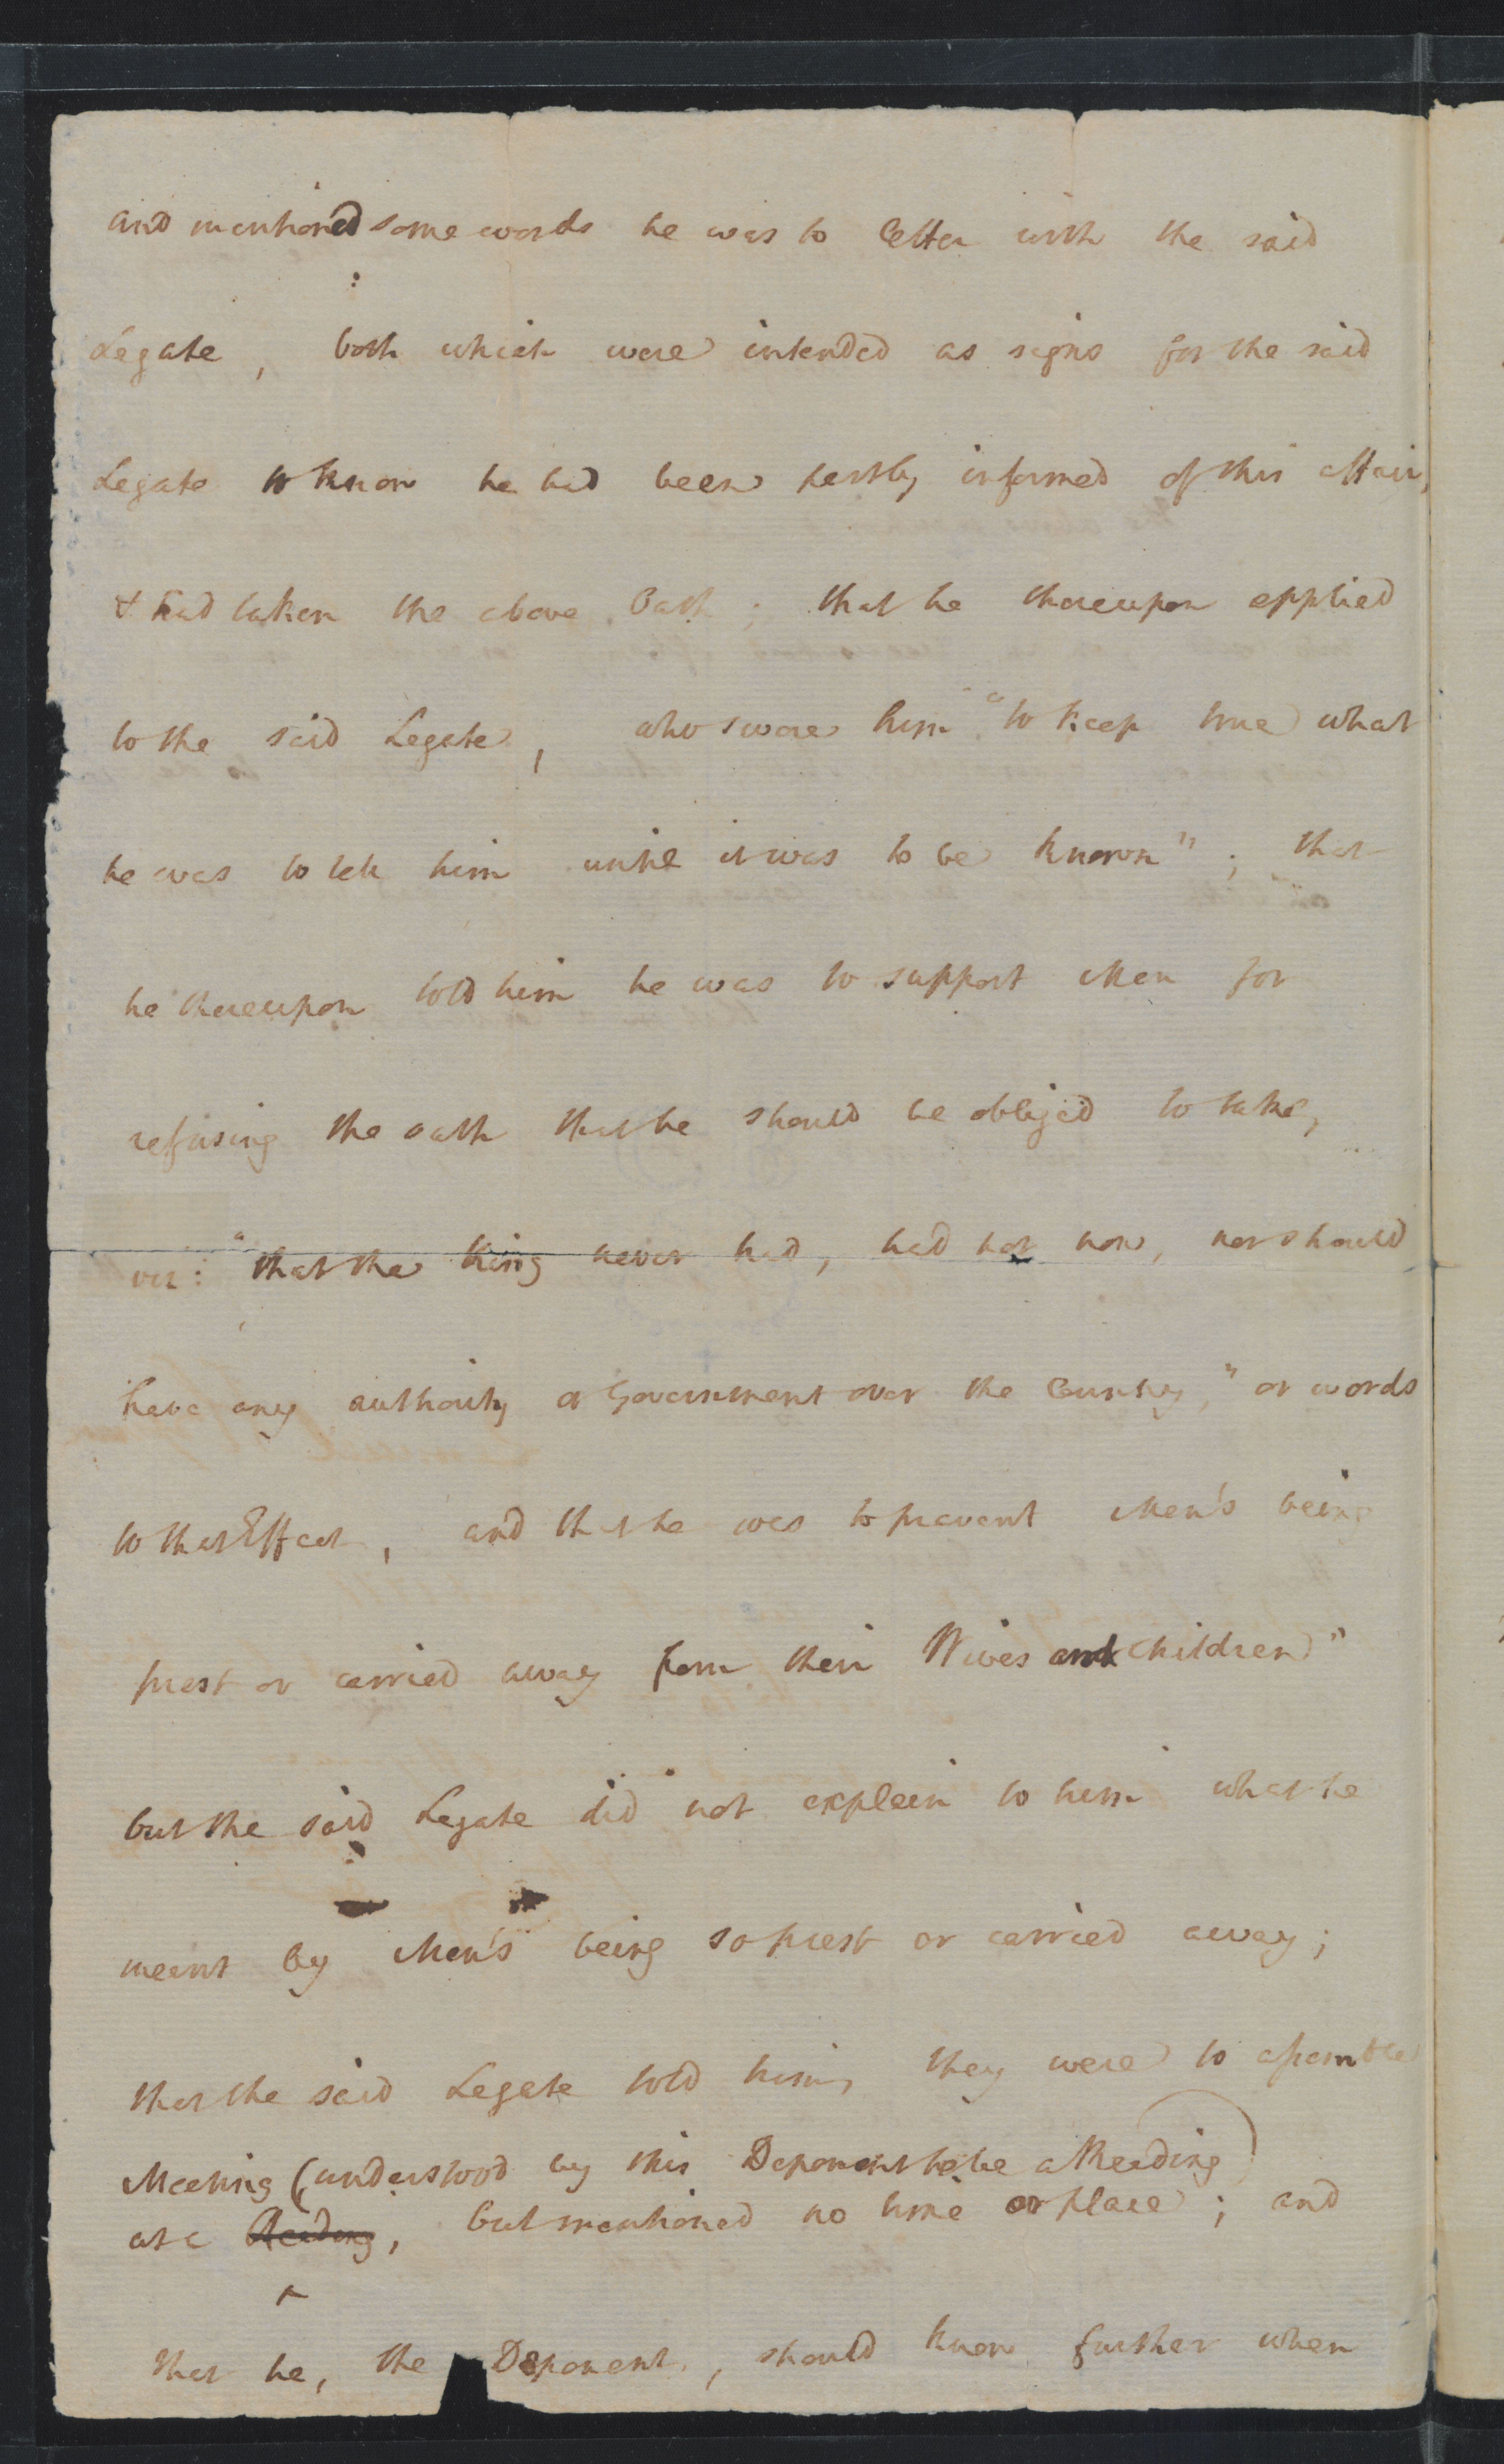 and mentioned some words he was to letter with the said
Legate, both which were intended as signs for the said
Legate to know he had been partly informed of this affair,
& had taken the above Oath; that he thereupon applied
to the said Legate, who swore him "to keep true what
he was to tell him until it was to be known"; that
he thereupon told him he was to support Men for
refusing the oath that he should be obliged to take,
viz: "that the King never had, had not now, nor should
have any authority or Government over the Country," or words
to that Effect, and that he was to prevent Men's being
prest or carried away from their Wives and children"
but the said Legate did not explain to him what he
meant by Men's being so prest or carried away;
that the said Legate told him, they were to assemble
Meeting (understood by this Deponent to be a Reading)
at a Reading, but mentioned no time or place; and
that he, the Deponent, should know further when